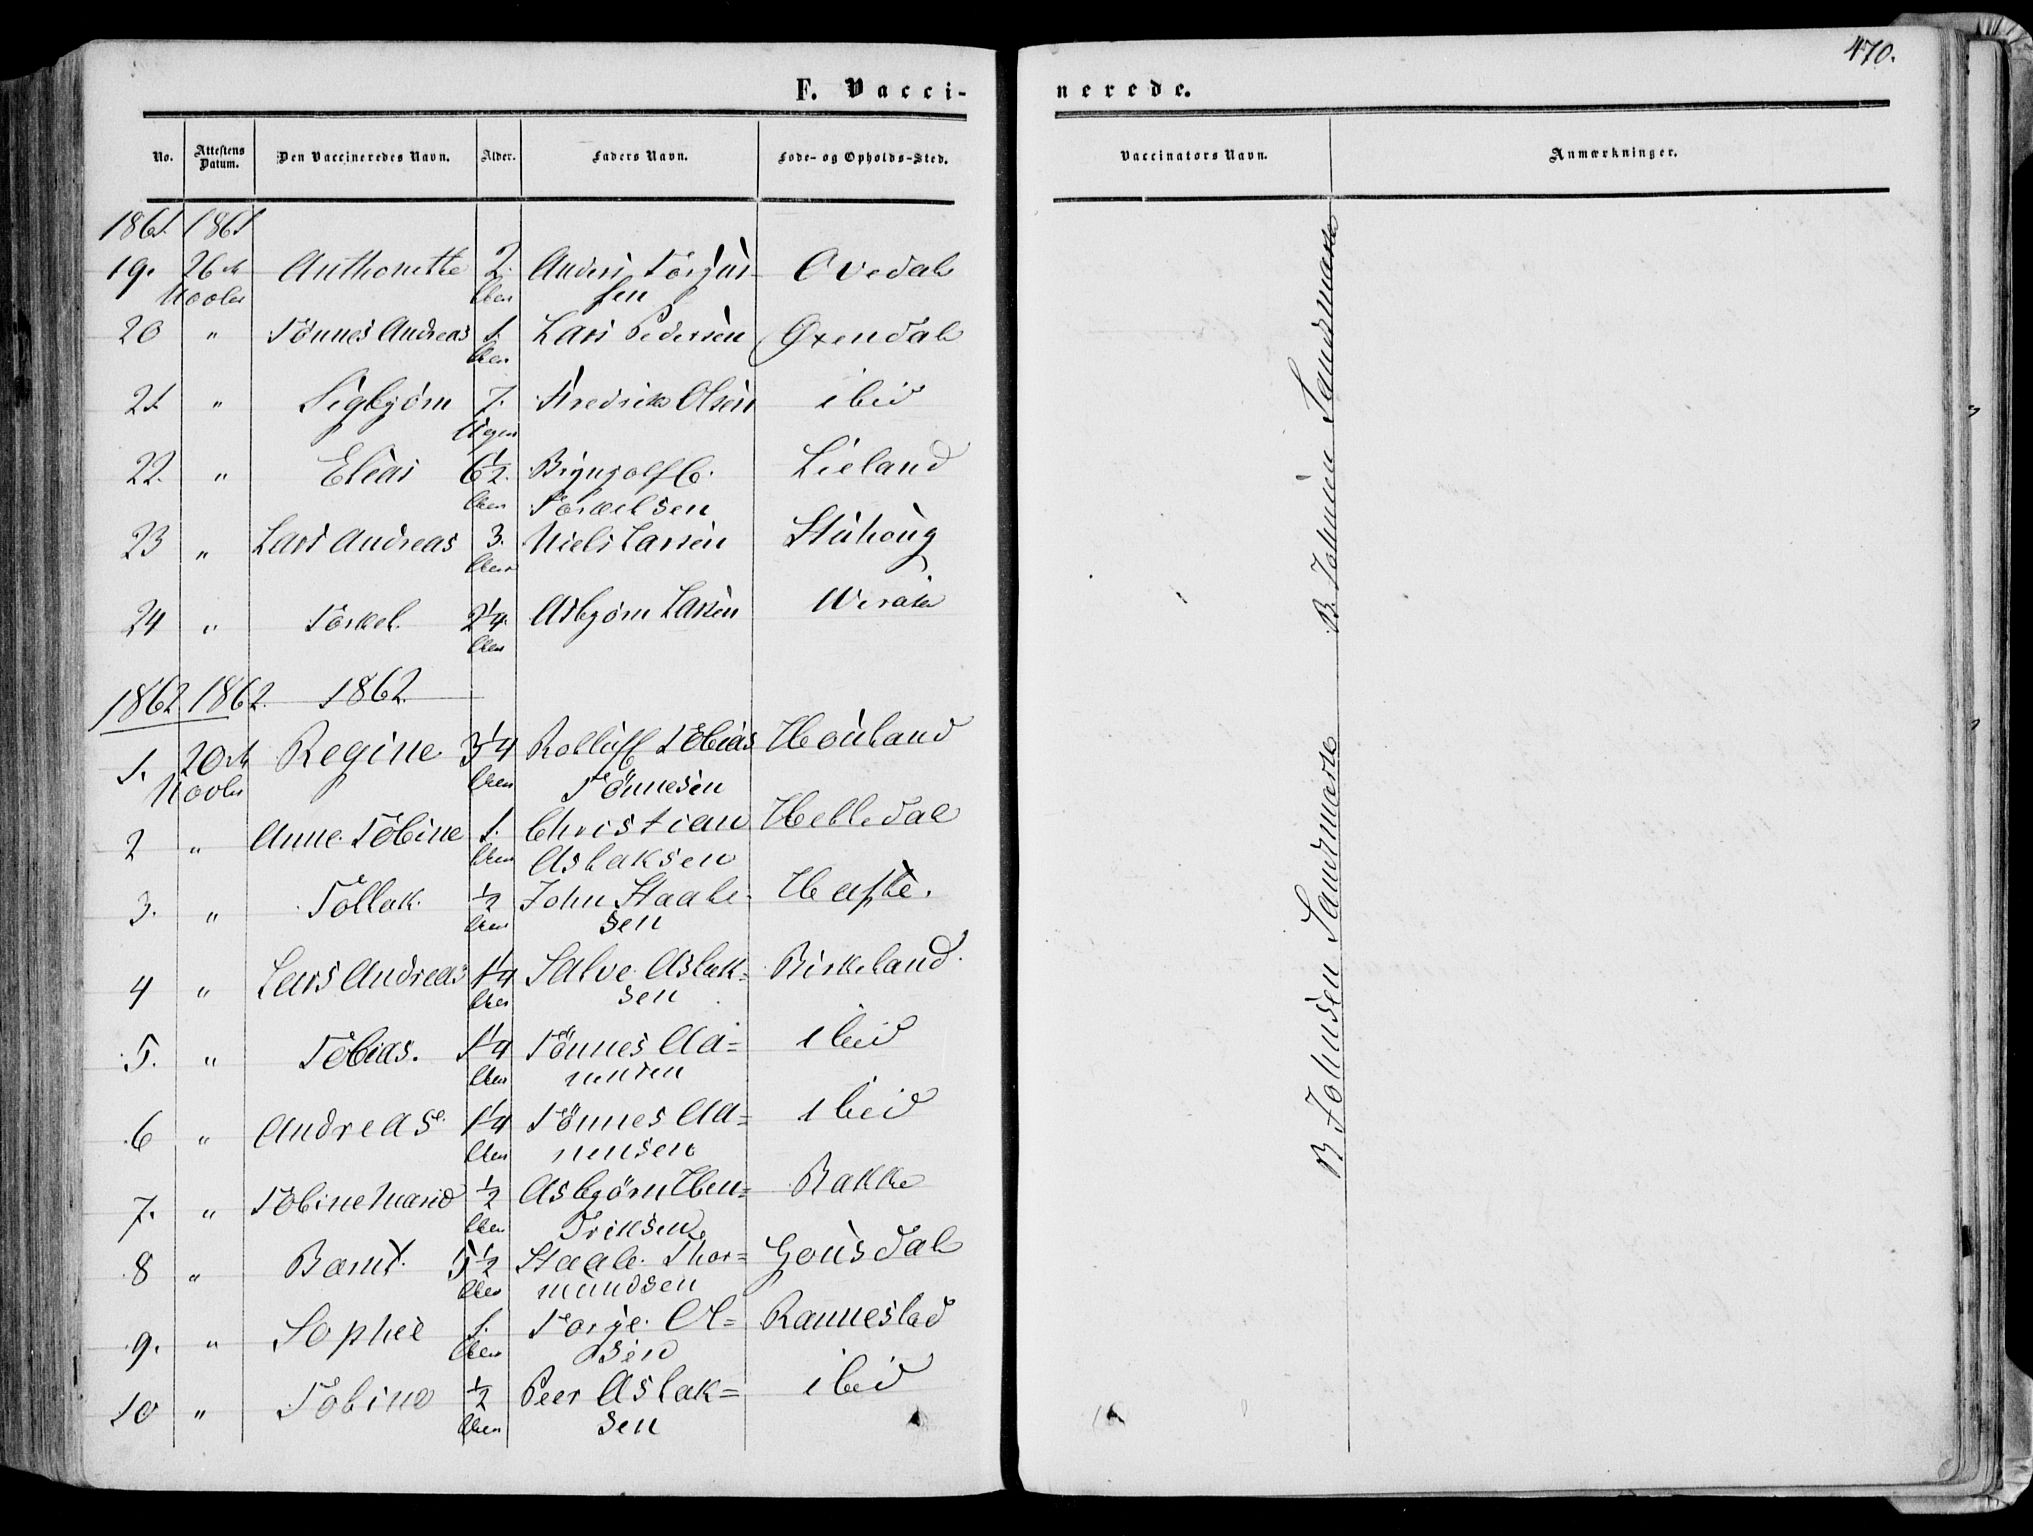 470.
F. Vacci-
nerede.
No. Attestens Datum. Den Vaccineredes Navn. Alder. Faders Navn. Føde- og Opholds-Sted. Vaccinators Navn. Anmærkninger.
1861. 1861
19. 26de Novbr Anthonette 2. Aar Anders Torjus-
sen Ovedal
20 " Tönnes Andreas 1. Aar Lars Pedersen Oxendal
21 " Sigbjørn 7. Uger Fredrik Olsen ibid
22. " Elias 6½. Aar
Torkelsen Lieland
23 " Lars Andreas 3. Aar Niels Larsen
24 " Torkel. 2¼. Aar Asbjørn Larsen
1862 1862. 1862.
1. 20de Novbr Regine 3¼ Aar Tobias
Tönnesen Houland
2 " Anne Tobine 1. Aar Christian
Aslaksen Helledal
3. " Tollak. ½ Aar John Staale-
sen
4 " Lars Andreas 1¼ Aar Salve Aslak=
sen Birkeland.
5. " Tobias. 1¼ Aar Tönnes Aa=
nensen ibid
6 " Andreas 1¼ Aar Tönnes Aa=
nensen ibid
7. " Tobine Marie ½ Aar Asbjørn Hen=
driksen Bakke
8 " Barnt. 5½ Aar Staale Thor=
mundsen Gousdal
9. " Sophie 1. Aar Torje Ol=
sen Rannestad
10 " Tobine ½ Aar Peer Aslak=
sen ibid
B Johnsen Sandsmark
B Johnsen Sandsmark